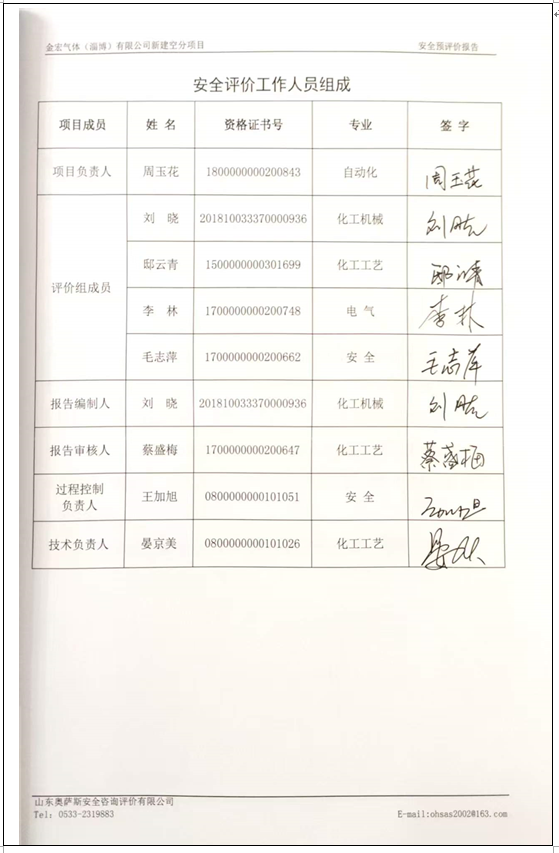 金宏气体（淄博）有限公司新建空分项目 安全预评价报告
安全评价工作人员组成
项目成员 姓 名 资格证书号 专业 签 字
项目负责人 周玉花 1800000000200843 自动化 周玉花
评价组成员 刘 晓 201810033370000936 化工机械 刘晓
邸云青 1500000000301699 化工工艺 邸云青
李 林 1700000000200748 电 气 李林
毛志萍 1700000000200662 安 全 毛志萍
报告编制人 刘 晓 201810033370000936 化工机械 刘晓
报告审核人 蔡盛梅 1700000000200647 化工工艺 蔡盛梅
过程控制
负责人 王加旭 0800000000101051 安 全
技术负责人 晏京美 0800000000101026 化工工艺
山东奥萨斯安全咨询评价有限公司
Tel: 0533-2319883 E-mail:ohsas2002@163.com